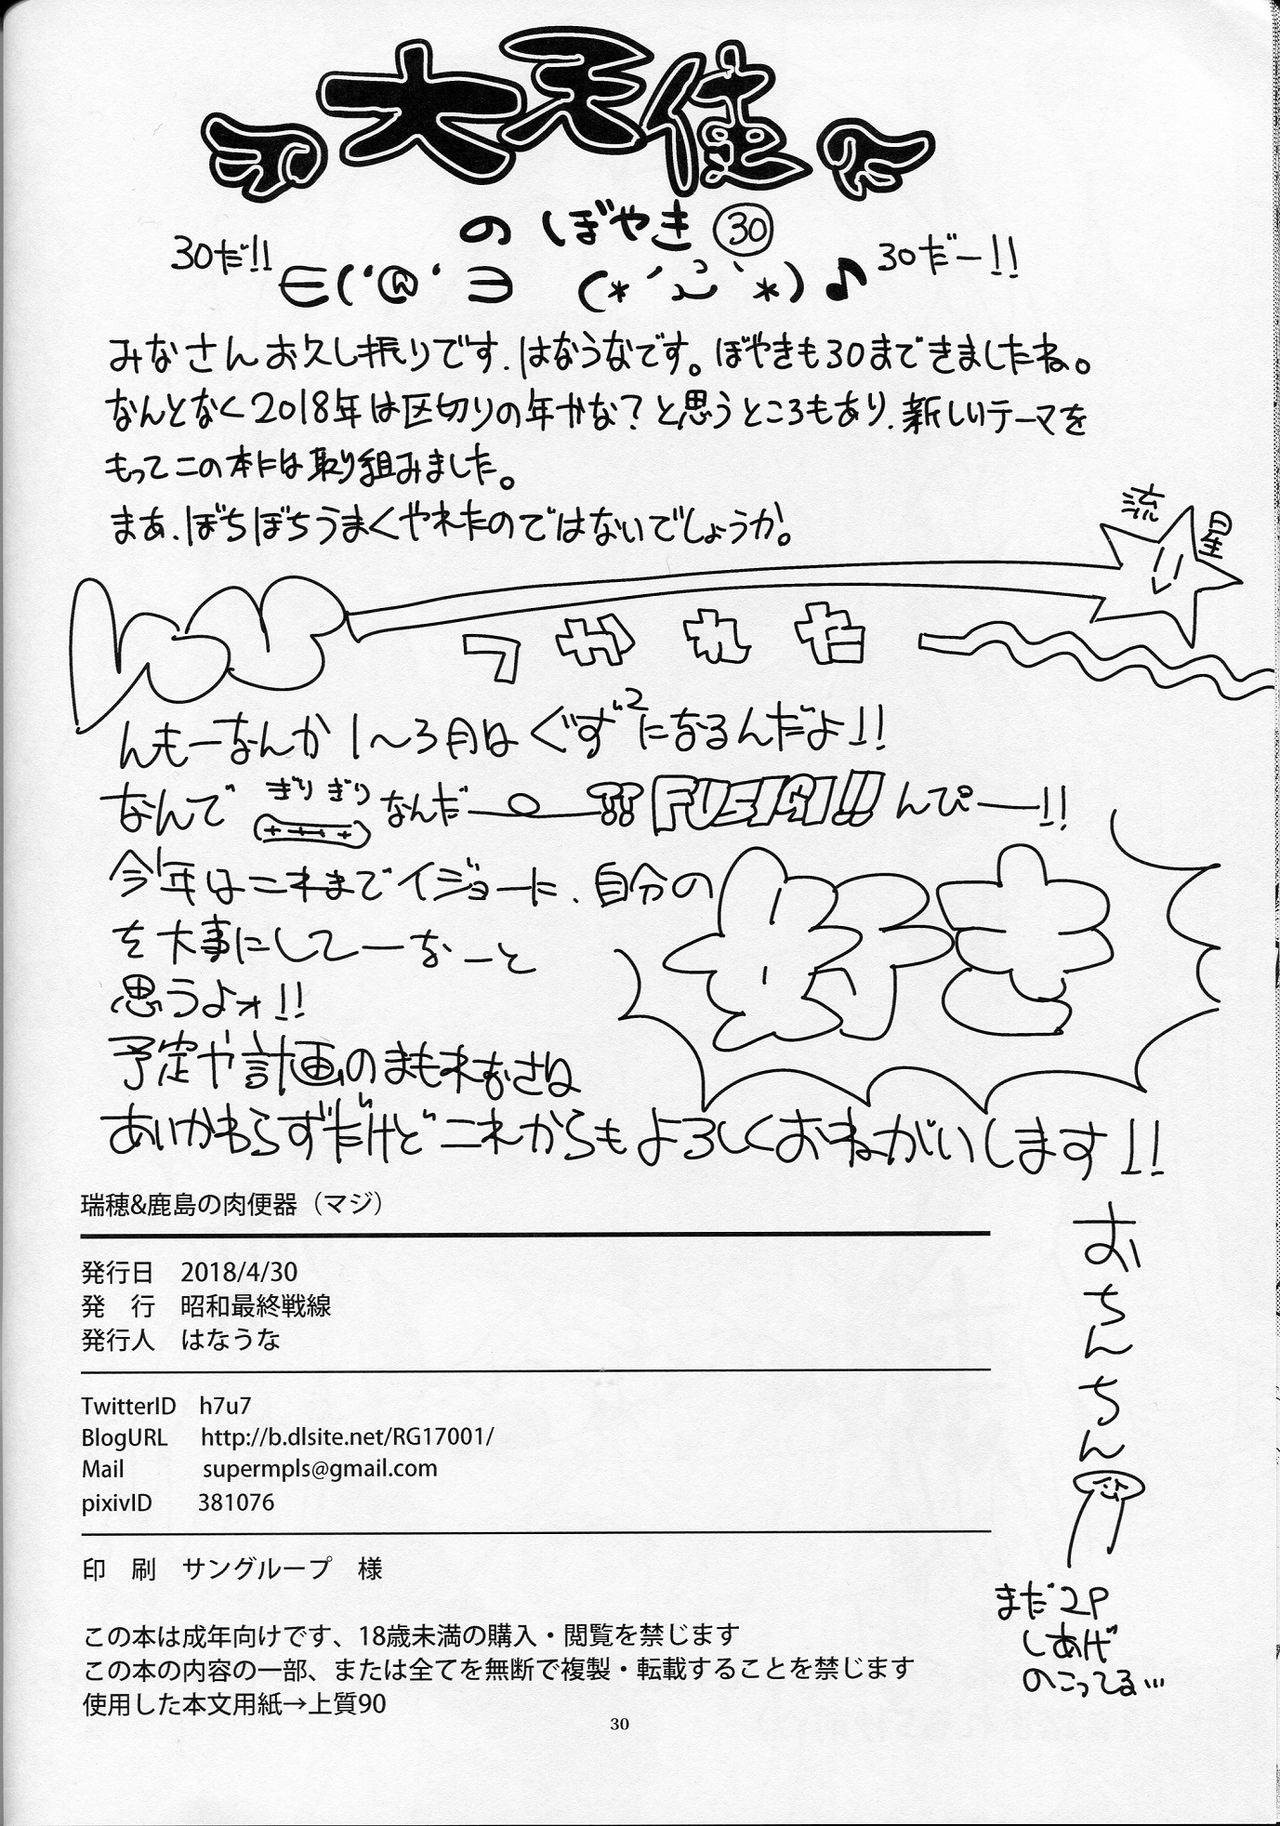 大天使
のぼやき㉚
30だ!! ∈('@' ∋ (*´ω`*)♪ 30だー!!
みなさんお久し振りです.はなうなです。ぼやきも30まできましたね。
なんとなく2018年は区切りの年かな?と思うところもあり.新しいテーマを
もってこの本には取り組みました。
まぁ.ぼちぼちうまくやれたのではないでしょうか。
流星
つかれた
んもーなんか1〜3月はぐず²になるんだよ!!
なんでぎりぎりなんだー!! FUSIGI!! んぴー!!
今年はこれまでイジョーに.自分の好き
を大事にしてーなーと
思うよォ!!
予定や計画のまもれなさは
あいかわらずだけどこれからもよろしくおねがいします!!
おちんちん
まだ2P
しあげ
のこってる…
瑞穂&鹿島の肉便器（マジ）
発行日 2018/4/30
発 行 昭和最終戦線
発行人 はなうな
TwitterID h7u7
BlogURL http://b.dlsite.net/RG17001/
Mail supermpls@gmail.com
pixivID 381076
印 刷 サングループ 様
この本は成年向けです、18歳未満の購入・閲覧を禁じます
この本の内容の一部、または全てを無断で複製・転載することを禁じます
使用した本文用紙→上質90
30